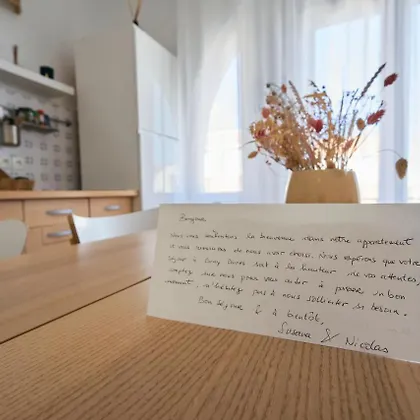 Bonjour,
Nous vous souhaitons la bienvenue dans notre appartement
et vous remercions de nous avoir choisi. Nous espérons que votre
séjour à soit à la hauteur de vos attentes,
comptez sur nous pour vous aider à passer un bon
moment, n'hésitez pas à nous solliciter si besoin.
Bon séjour & à bientôt,
Susana & Nicolas